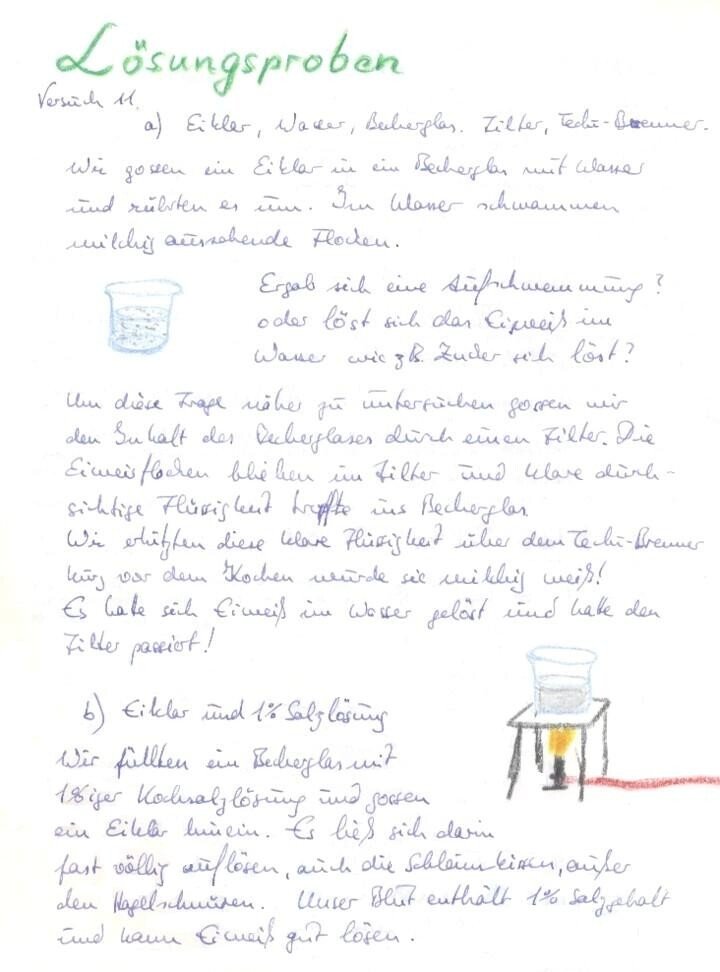 Lösungsproben
Versuch 11.
a) Eiklar, Wasser, Becherglas. Filter, Teclu-Brenner.
Wir gossen ein Eiklar in ein Becherglas mit Wasser
und rührten es um. Im Wasser schwammen
milchig aussehende Flocken.
Ergab sich eine Aufschwemmung?
oder löst sich das Eiweiß im
Wasser wie z.B. Zucker sich löst?
Um diese Frage näher zu untersuchen gossen wir
den Inhalt des Becherglases durch einen Filter. Die
Eiweisflocken blieben im Filter und klare durch-
sichtige Flüssigkeit tropfte ins Becherglas.
Wir erhitzten diese klare Flüssigkeit über dem Teclu-Brenner
kurz vor dem Kochen wurde sie milchig weiß!
Es hatte sich Eiweiß im Wasser gelöst und hatte den
Filter passiert!
b) Eiklar und 1% Salzlösung
Wir füllten ein Becherglas mit
1%iger Kochsalzlösung und gossen
ein Eiklar hinein. Es ließ sich darin
fast völlig auflösen, auch die Schleimkissen, außer
den Hagelschnüren. Unser Blut enthält 1% Salzgehalt
und kann Eiweiß gut lösen.